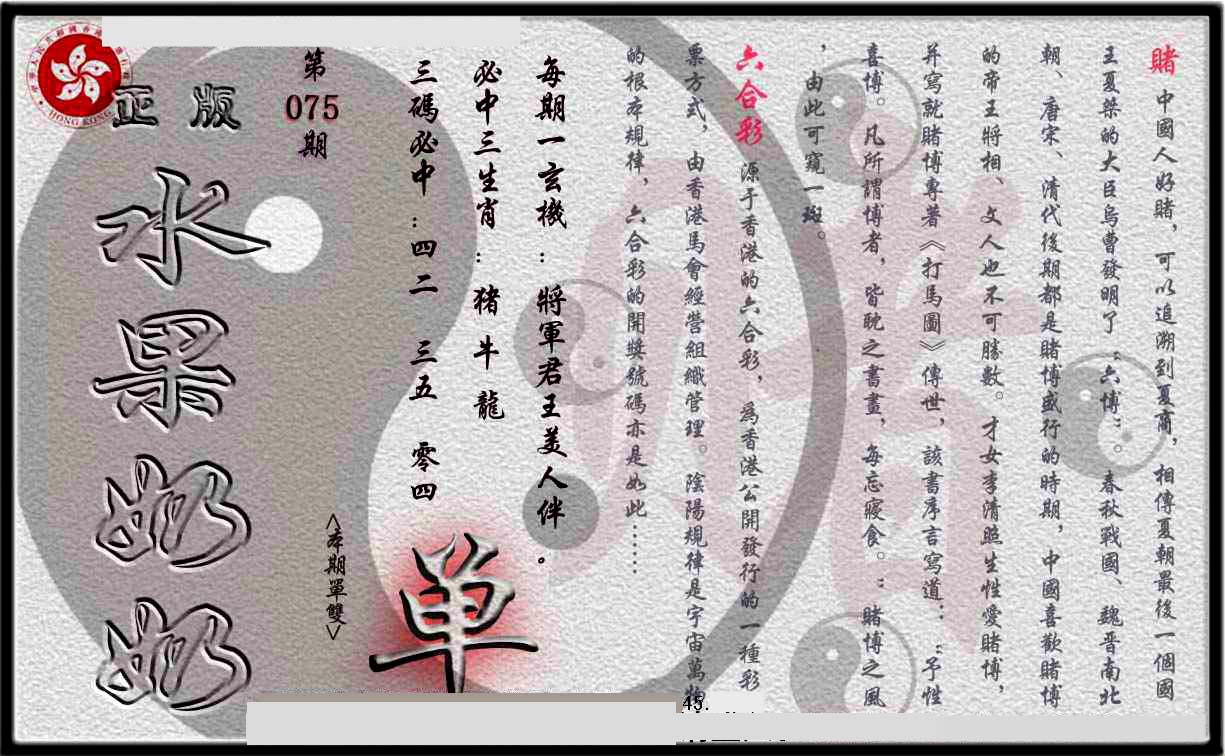 賭 中國人好賭，可以追溯到夏商，相傳夏朝最後一個國
王夏桀的大臣烏曹發明了“六博”。春秋戰國、魏晋南北
朝、唐宋、清代後期都是賭博盛行的時期，中國喜歡賭博
的帝王將相、文人也不可勝數。才女李清照生性愛賭博，
并寫就賭博專著《打馬圖》傳世，該書序言寫道：“予性
喜博。凡所謂博者，皆耽之晝畫，每忘寢食。”賭博之風
，由此可窺一斑。
六合彩 源于香港的六合彩，爲香港公開發行的一種彩
票方式，由香港馬會經營組織管理。陰陽規律是宇宙萬物
的根本規律，六合彩的開獎號碼亦是如此……
每期一玄機：將軍君王美人伴。
必中三生肖：猪 牛 龍
三碼必中：四二 三五 零四
单
<本期單雙>
第
075
期
正版
水果奶奶
HONG KONG
45.